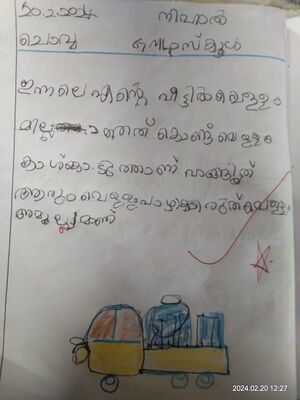 20.2.2024 നിഹാൽ
ചൊവ്വ GMLPസ്കൂൾ
ഇന്നലെ എന്റെ വീട്ടിൽ വെള്ളം
മില്ലാഞ്ഞത് കൊണ്ട് വെള്ളം
കാശ്കൊടുത്താണ് വാങ്ങിയത്
ആരും വെള്ളം പാഴാക്കരുത് വെള്ളം
അമൂല്ല്യമാണ്
2024.02.20 12:27